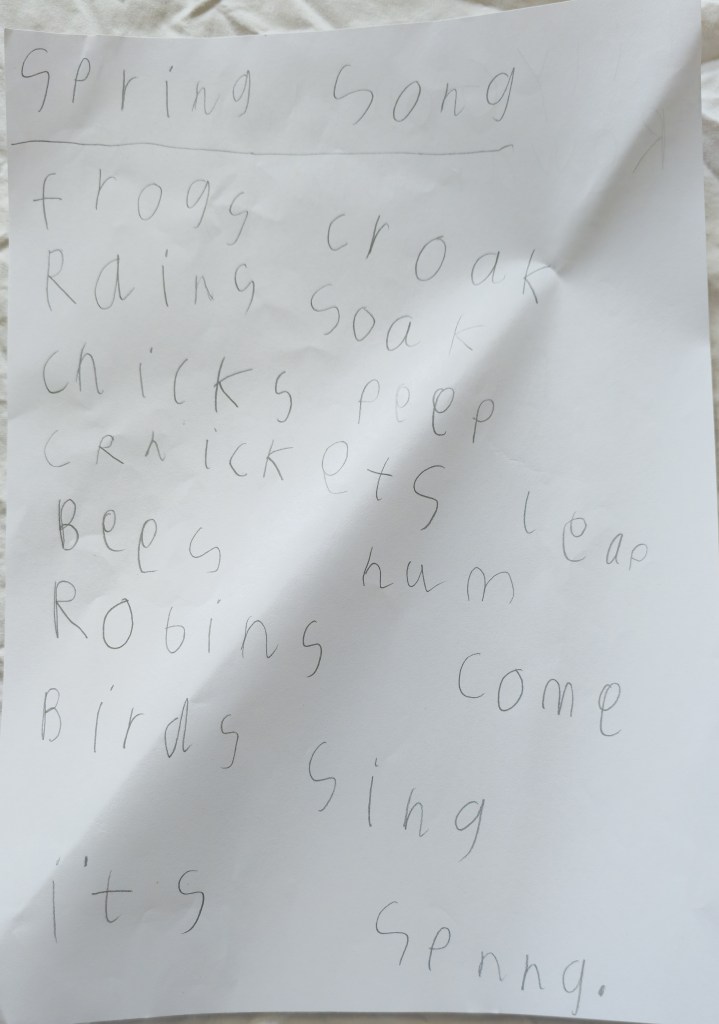 Spring Song
frogs croak
Rains soak
chicks peep
crnickets leap
Bees hum
Robins come
Birds sing
i'ts
Spnng.